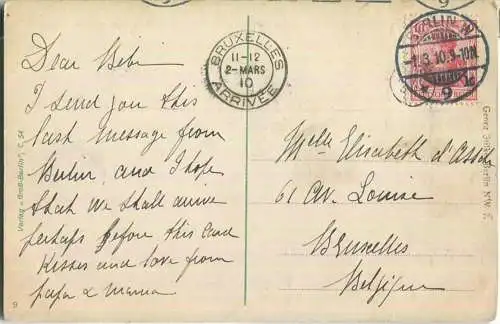 Dear Bebi
I send you this
last message from
Berlin, and I hope
that we shall arrive
perhaps before this card
Kisses and love from
papa & mama
Melle Elisabeth d'Assche
61 Av. Louise
Bruxelles
Belgique
BRUXELLES
11-12
2-MARS
10
ARRIVÉE
BERLIN
1.3.10.9-10N.
* 9
Verlag „Groß-Berlin“ C. 54
9